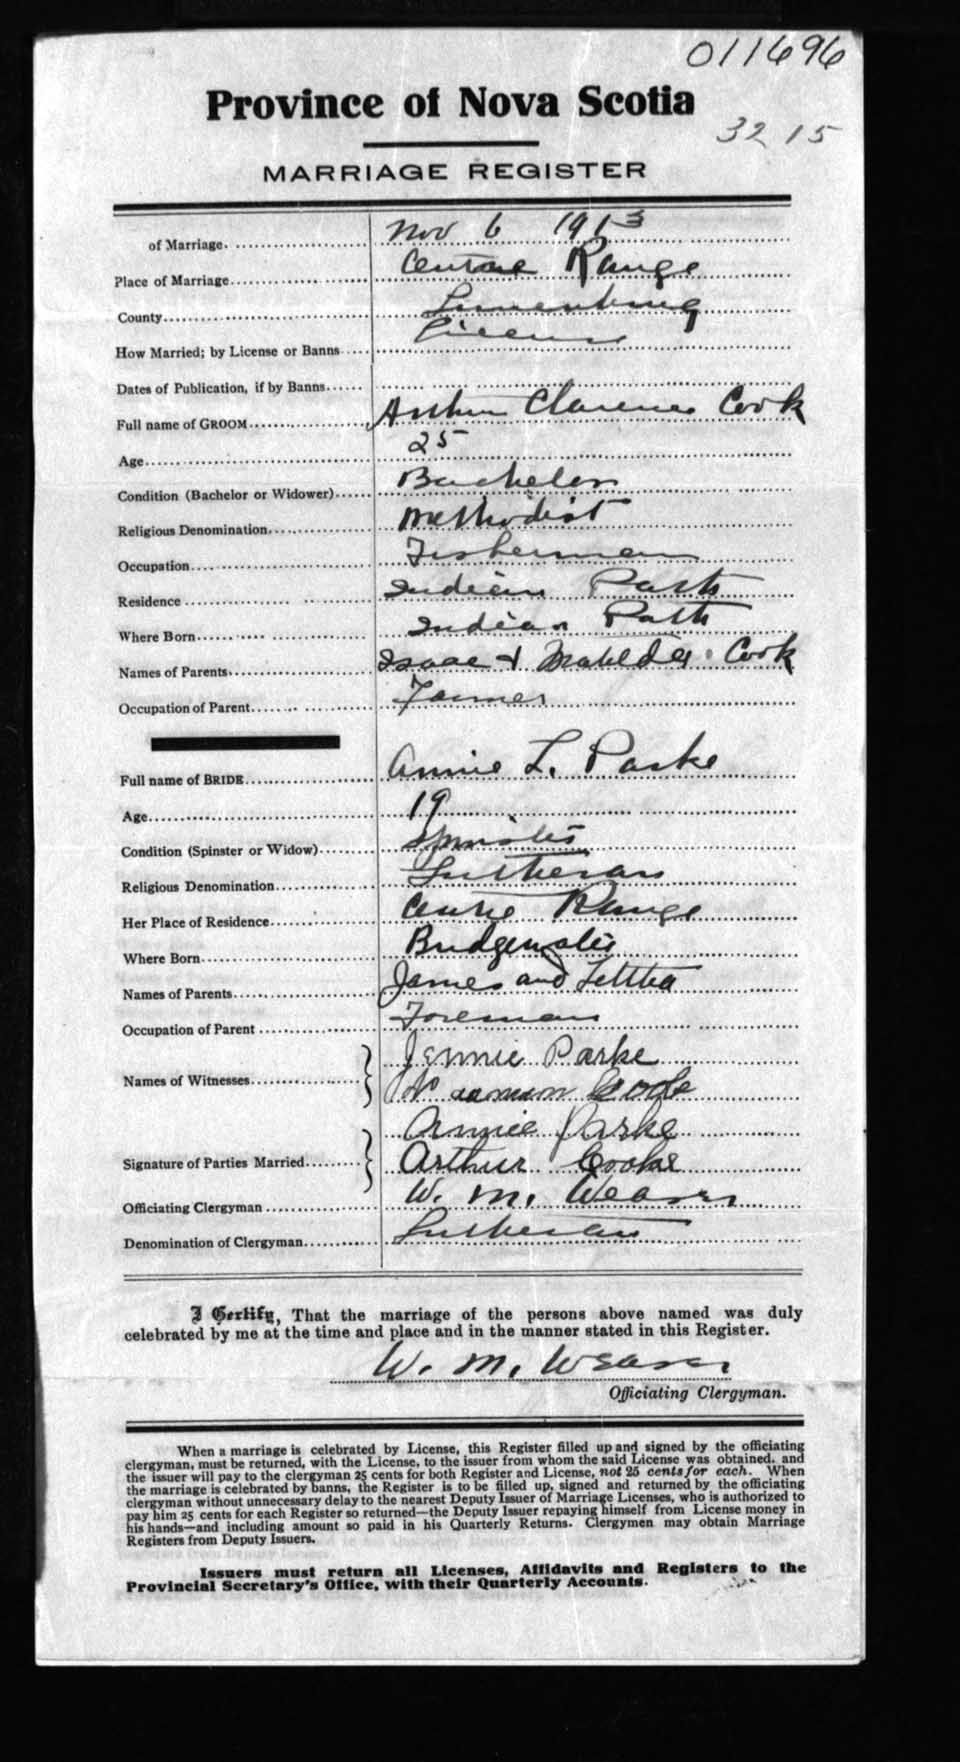 011696
Province of Nova Scotia
32 15
MARRIAGE REGISTER
of Marriage. Nov 6 1913
Place of Marriage Range
County Lunenburg
How Married; by License or Banns License
Dates of Publication, if by Banns
Full name of GROOM Arthur Clarence Cook
Age 25
Condition (Bachelor or Widower) Bachelor
Religious Denomination Methodist
Occupation Fisherman
Residence Indian Path
Where Born Indian Path
Names of Parents Isaac & Matilda Cook
Occupation of Parent Farmer
Full name of BRIDE Annie L. Parke
Age 19
Condition (Spinster or Widow) Spinster
Religious Denomination Lutheran
Her Place of Residence Centre Range
Where Born Bridgewater
Names of Parents James and Lettitia
Occupation of Parent Foreman
Jennie Parke
Names of Witnesses
Annie Parke
Signature of Parties Married Arthur Cooke
Officiating Clergyman W. M. Weaver
Denomination of Clergyman Lutheran
I Certify, That the marriage of the persons above named was duly
celebrated by me at the time and place and in the manner stated in this Register.
W. M. Weaver
Officiating Clergyman.
When a marriage is celebrated by License, this Register filled up and signed by the officiating
clergyman, must be returned, with the License, to the issuer from whom the said License was obtained. and
the issuer will pay to the clergyman 25 cents for both Register and License, not 25 cents for each. When
the marriage is celebrated by banns, the Register is to be filled up, signed and returned by the officiating
clergyman without unnecessary delay to the nearest Deputy Issuer of Marriage Licenses, who is authorized to
pay him 25 cents for each Register so returned—the Deputy Issuer repaying himself from License money in
his hands—and including amount so paid in his Quarterly Returns. Clergymen may obtain Marriage
Registers from Deputy Issuers.
Issuers must return all Licenses, Affidavits and Registers to the
Provincial Secretary's Office, with their Quarterly Accounts.